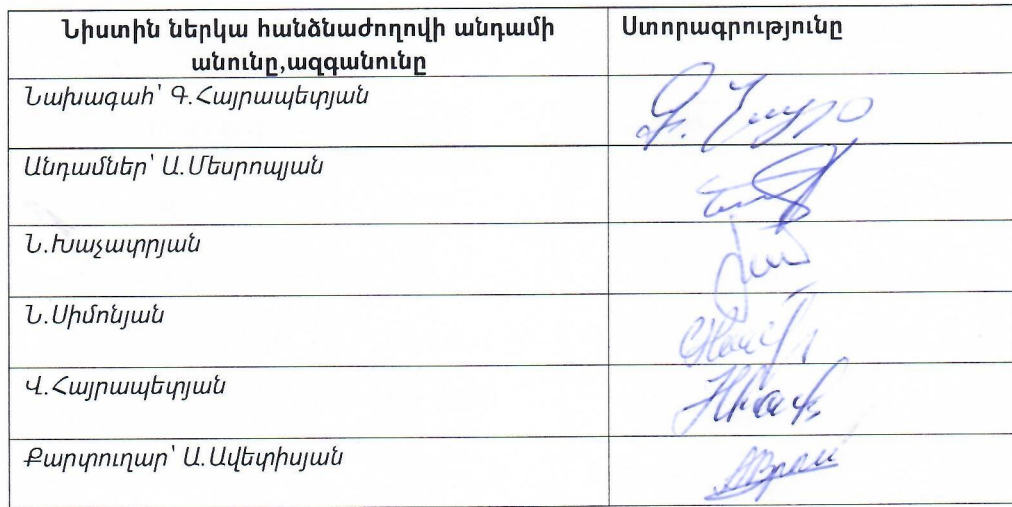 Նիստին ներկա հանձնաժողովի անդամի Ստորագրությունը
անունը,ազգանունը
Նախագահ՝ Գ.Հայրապետյան
Անդամներ՝ Ա.Մեսրոպյան
Ն.Խաչատրյան
Ն.Սիմոնյան
Վ.Հայրապետյան
Քարտուղար՝ Ա.Ավետիսյան